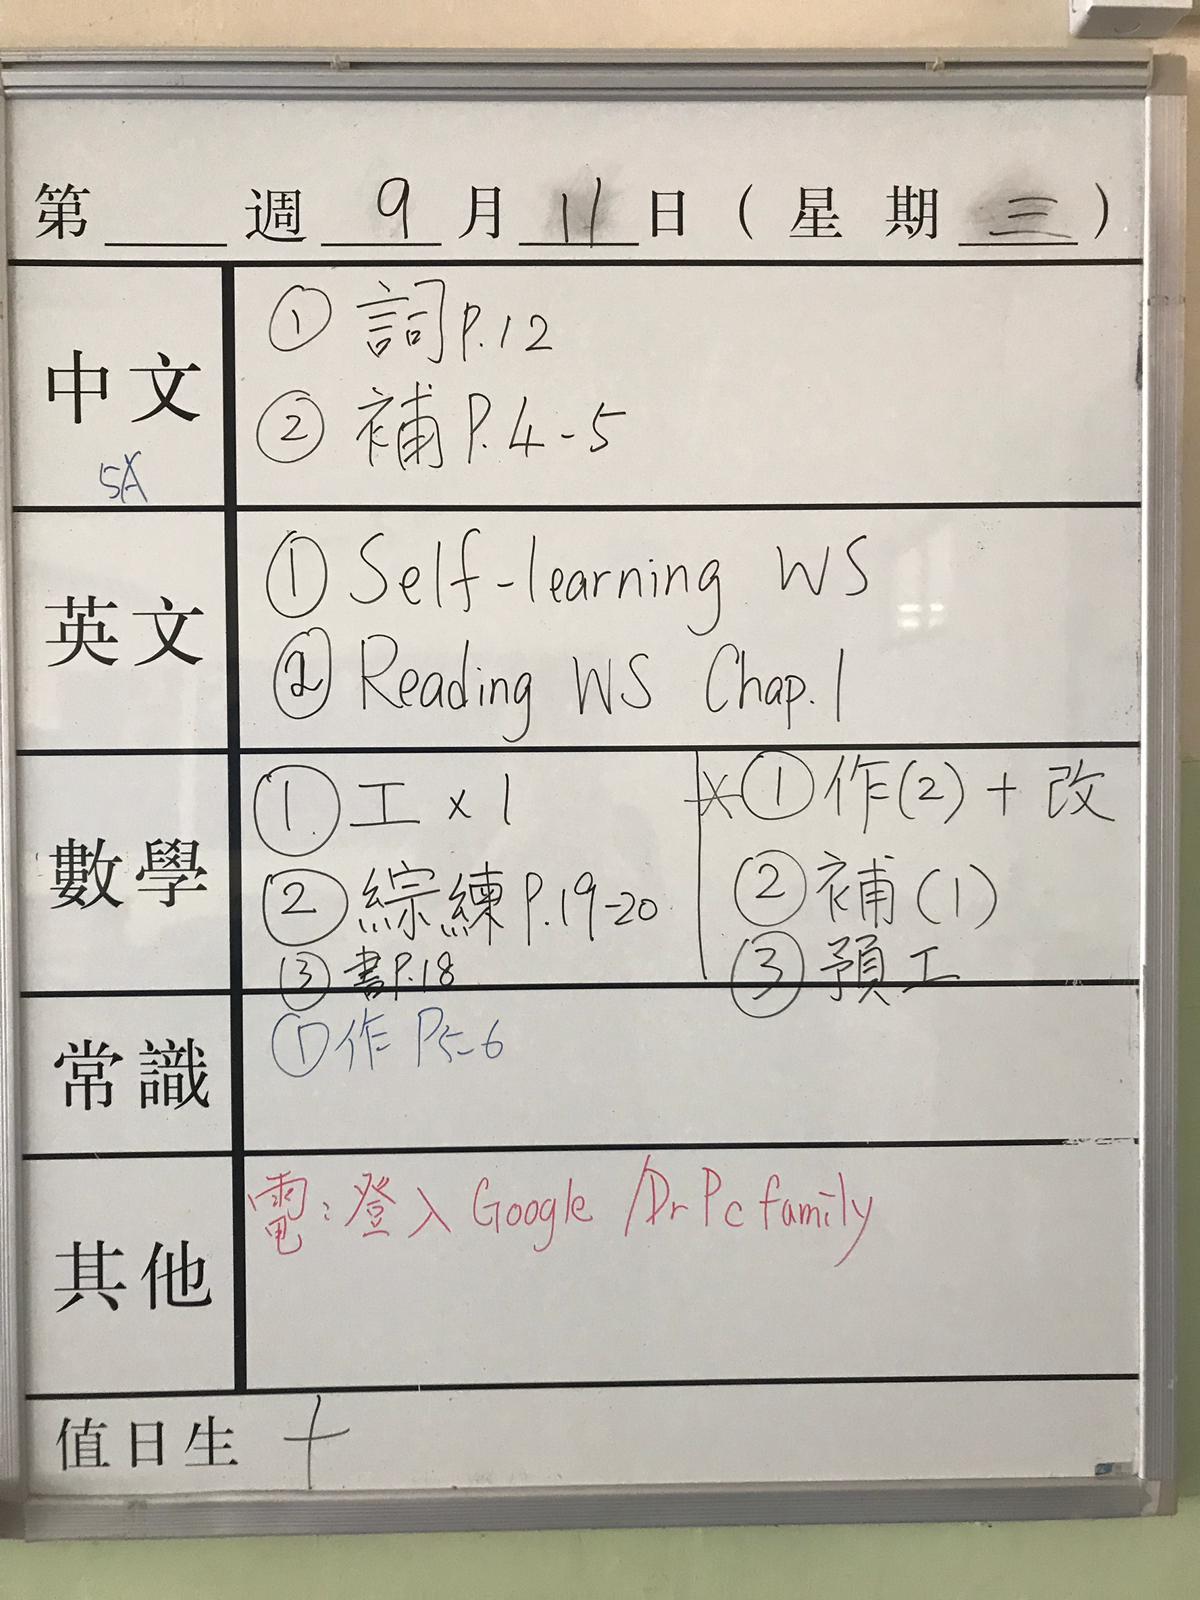 第 週 9 月 11 日 ( 星 期 三 )
中文
5A
① 詞 P.12
② 補 P.4-5
英文
① Self-learning WS
② Reading WS Chap.1
數學
① 工 x 1
② 綜練 P.19-20
③ 書 P.18
* ① 作(2) + 改
② 補(1)
③ 預工
常識
① 作 P5-6
其他
電:登入 Google / Dr Pc family
值日生 十